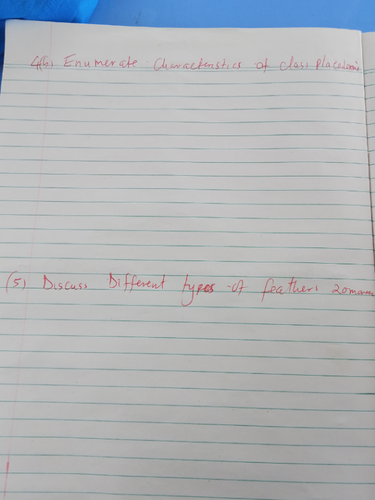 4(b) Enumerate Characteristics of class
(5) Discuss Different types of feathers